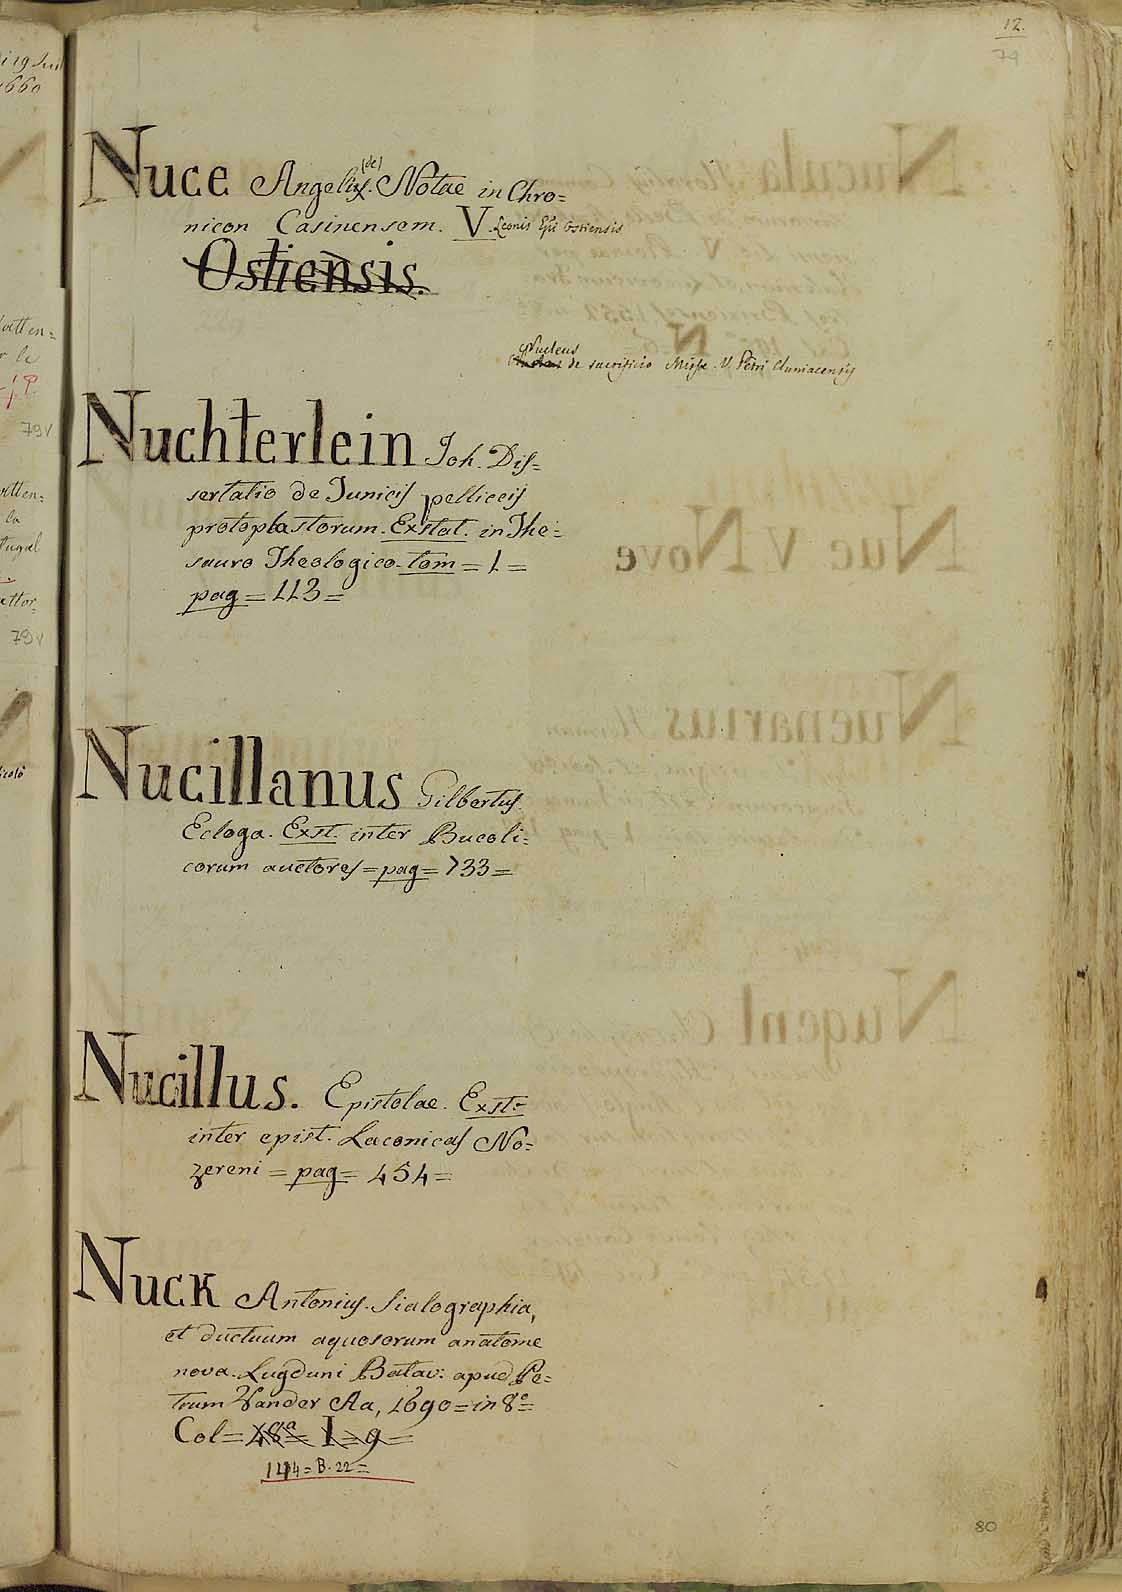 12.
74
Nuce Angelus (de) Notae in Chro=
nicon Casinensem. V. Leonis Epi Ostiensis
Ostiensis.
Nucleus
de sacrificio Missae. V. Petri Cluniacensis
Nuchterlein Joh. Dis=
sertatio de Tunicis pelliceis
protoplastorum. Exstat. in The=
sauro Theologico. tom = 1 =
pag = 113 =
Nucillanus Gilbertus.
Ecloga. Exst. inter Bucoli=
corum auctores = pag = 733 =
Nucillus. Epistolae. Exst:
inter epist. Laconicas No=
zereni = pag = 454 =
Nuck Antonius. Sialographia,
et ductuum aquosorum anatome
nova. Lugduni Batav: apud Pe=
trum Vander Aa, 1690 = in 8º =
Col = 48ª = I = 9 =
114 = B. 22 =
80